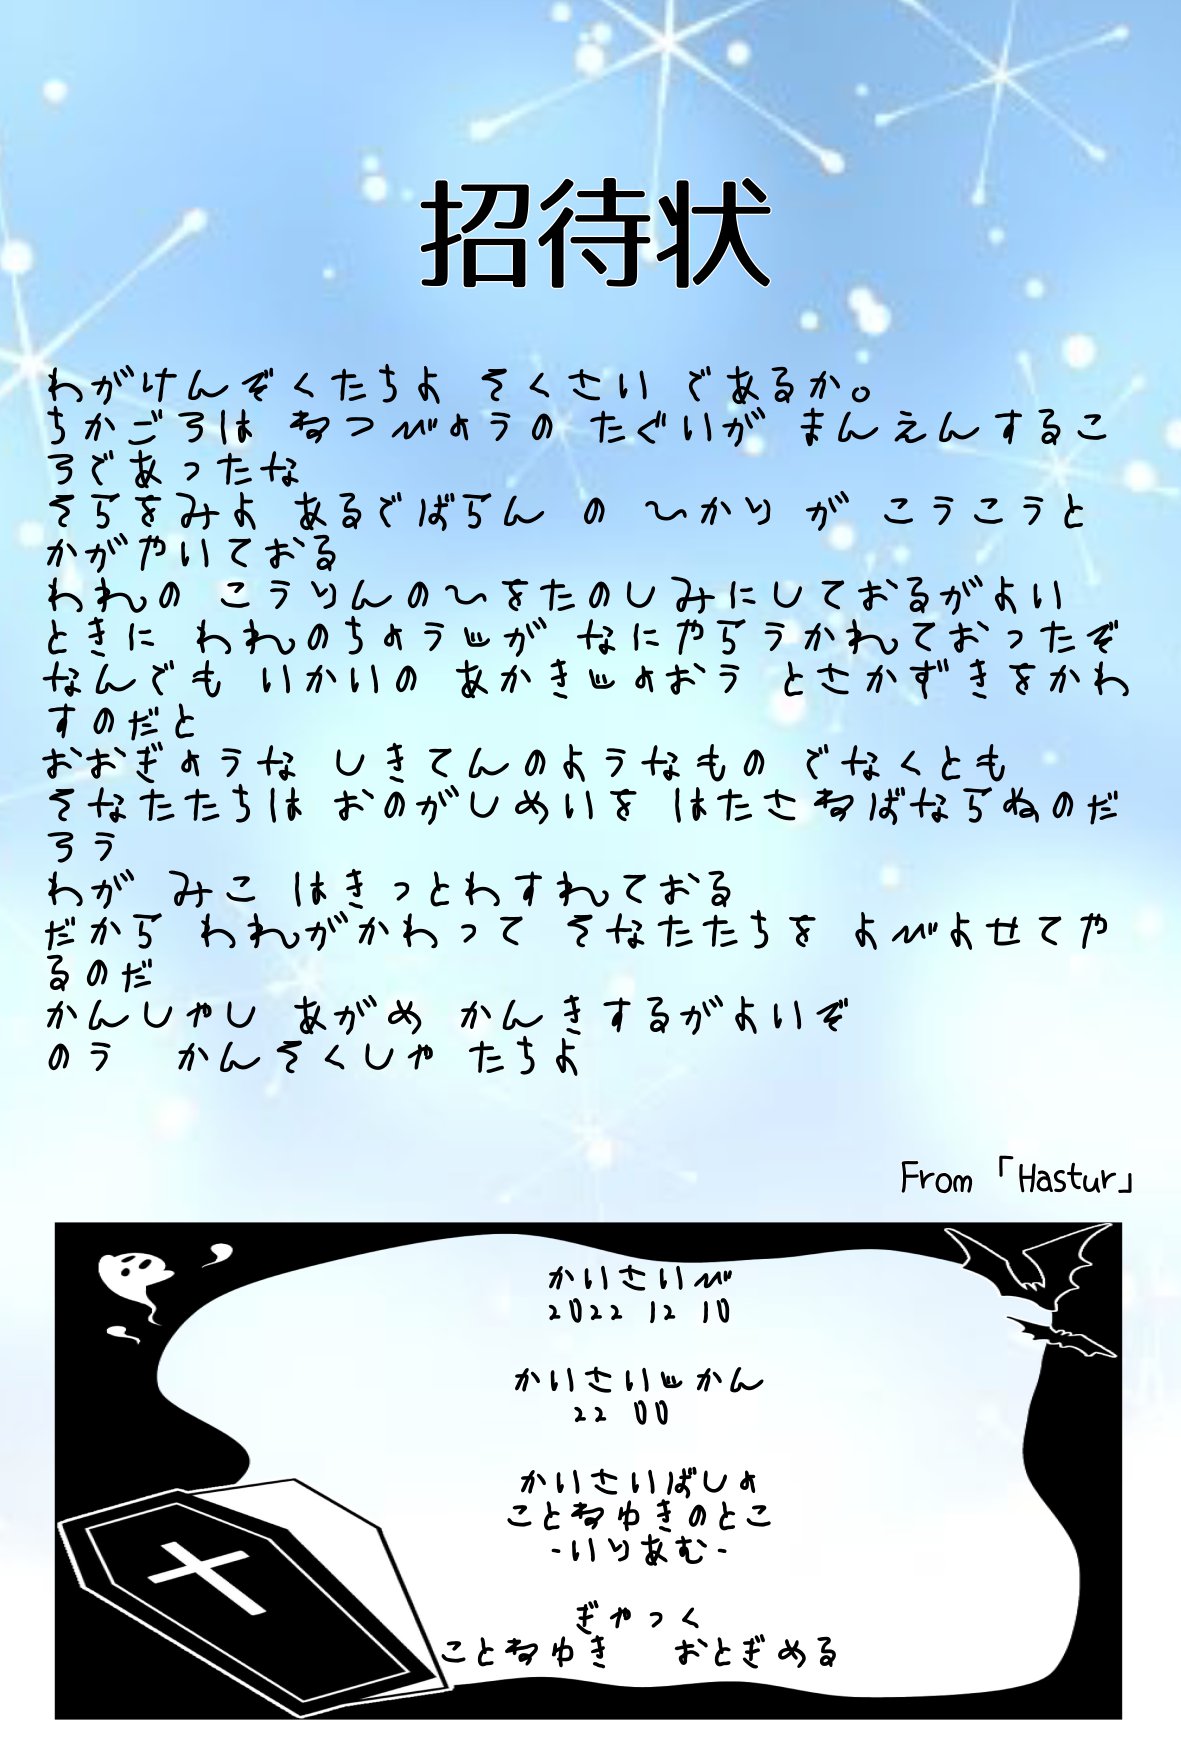 招待状
わがけんぞくたちよ そくさい であるか。
ちかごろは ねつびょうの たぐいが まんえんするこ
ろであったな
そらをみよ あるでばらん の ひかり が こうこうと
かがやいておる
われの こうりんのひをたのしみにしておるがよい
ときに われのちょうじが なにやらうかれておったぞ
なんでも いかいの あかきじょおう とさかずきをかわ
すのだと
おおぎょうな しきてんのようなもの でなくとも
そなたたちは おのがしめいを はたさねばならぬのだ
ろう
わが みこ はきっとわすれておる
だから われがかわって そなたたちを よびよせてや
るのだ
かんしゃし あがめ かんきするがよいぞ
のう かんそくしゃ たちよ
From「Hastur」
かいさいび
2022 12 10
かいさいじかん
22 00
かいさいばしょ
ことねゆきのとこ
-いりあむ-
ぎゃっく
ことねゆき おとぎめる